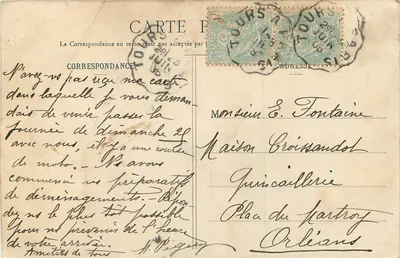 CARTE P
La Correspondance au recto n'est pas acceptée par
CORRESPONDANCE
ADRESSE
TOURS A PARIS
28 JUIN 05
TOURS A PARIS
TOURS A PARIS
28 JUIN 05
N'avez-vs pas reçu une carte
dans laquelle je vous deman-
dais de venir passer la
journée de dimanche 25
avec nous, il y a une course
de moto. - Ns avons
commencé nos préparatifs
de déménagements. - Répon
dez-ns le plus tôt possible
pour ns prévenir de l'heure
de votre arrivée.
Amitiés de tous
Monsieur E. Fontaine
Maison Croissandot
Quincaillerie
Place du Martroy
Orléans